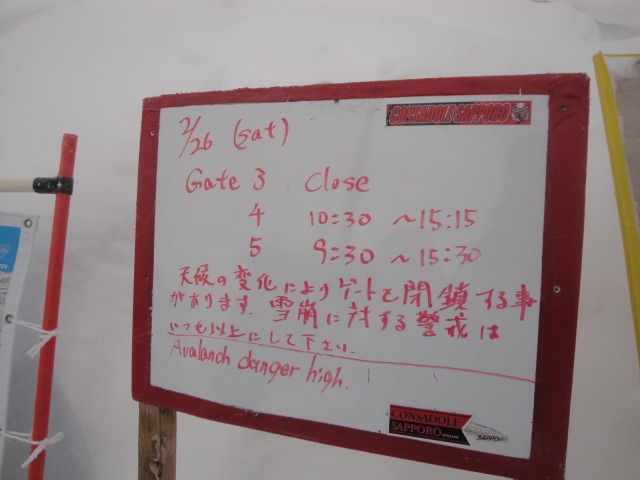 CONSADOLE SAPPORO
2/26 (sat)
Gate 3 Close
4 10:30 ~15:15
5 9:30 ~15:30
天候の変化によりゲートを閉鎖する事
があります。雪崩に対する警戒は
いつも以上にして下さい。
Avalanch danger high.
CONSADOLE
SAPPORO
SAPPORO